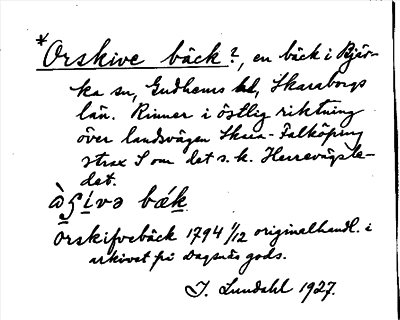 *Orskive bäck?, en bäck i Bjär-
ka sn, Gudhems hd, Skaraborgs
län. Rinner i östlig riktning
över landsvägen Skara - Falköping
strax S om det s.k. Herrevägsle-
det.
bæk
Orskifvebäck 1794 1/12 originalhandl. i
arkivet på Dagsnäs gods.
I. Lundahl 1927.